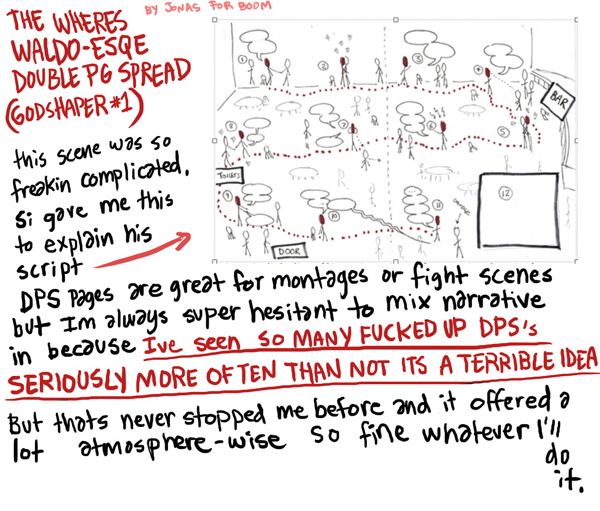 THE WHERES
WALDO-ESQE
DOUBLE PG SPREAD
(GODSHAPER #1)
BY JONAS FOR BOOM
this scene was so
freakin complicated.
Si gave me this
to explain his
script
1
2
3
4
BAR
8
7
6
5
TOILETS
9
10
11
12
DOOR
DPS pages are great for montages or fight scenes
but Im always super hesitant to mix narrative
in because Ive seen SO MANY FUCKED UP DPS's
SERIOUSLY MORE OFTEN THAN NOT ITS A TERRIBLE IDEA
But thats never stopped me before and it offered a
lot atmosphere-wise so fine whatever I'll
do
it.